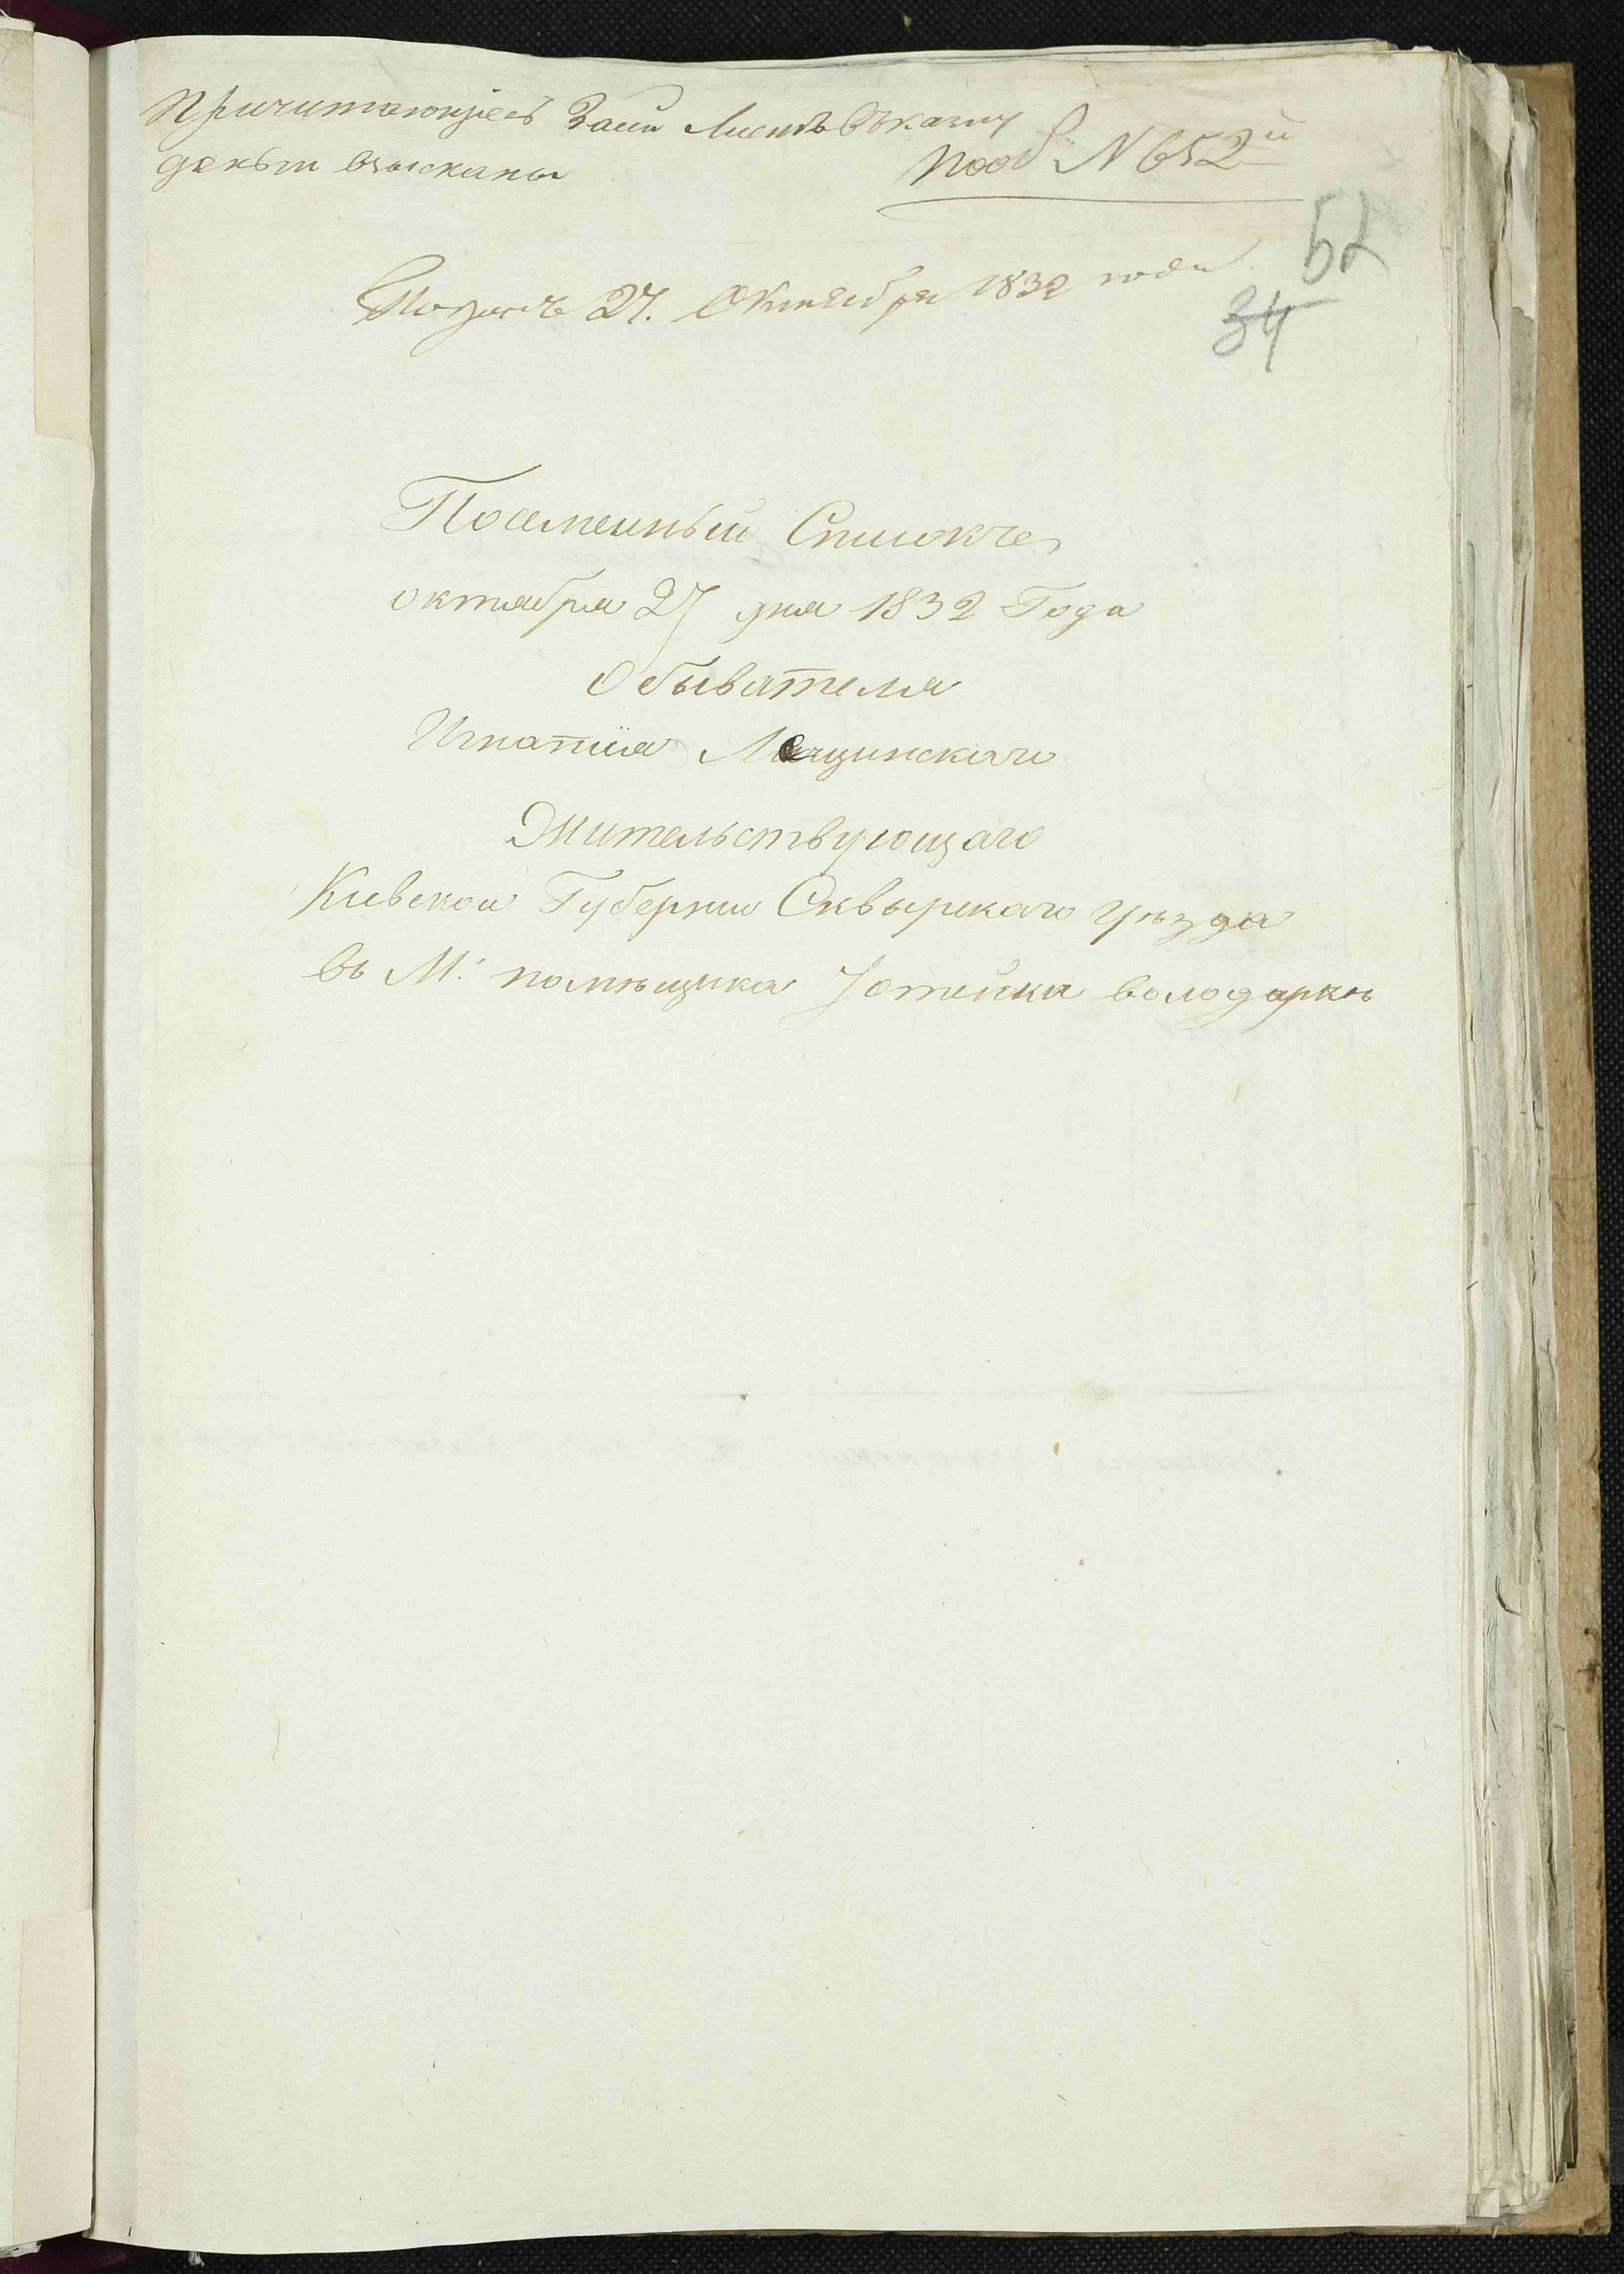 Причитающіесь Засій Листъ въ казну
деньги взысканы
под N 652й
52
Подан 27. Октября 1832 года
34
Посемейный Список
октября 27 дня 1832 Года
Обывателя
Игнатия Лещинскаго
Жительствующаго
Киевской Губернии Сквырскаго уѣзда
въ М: помѣщика володаркѣ